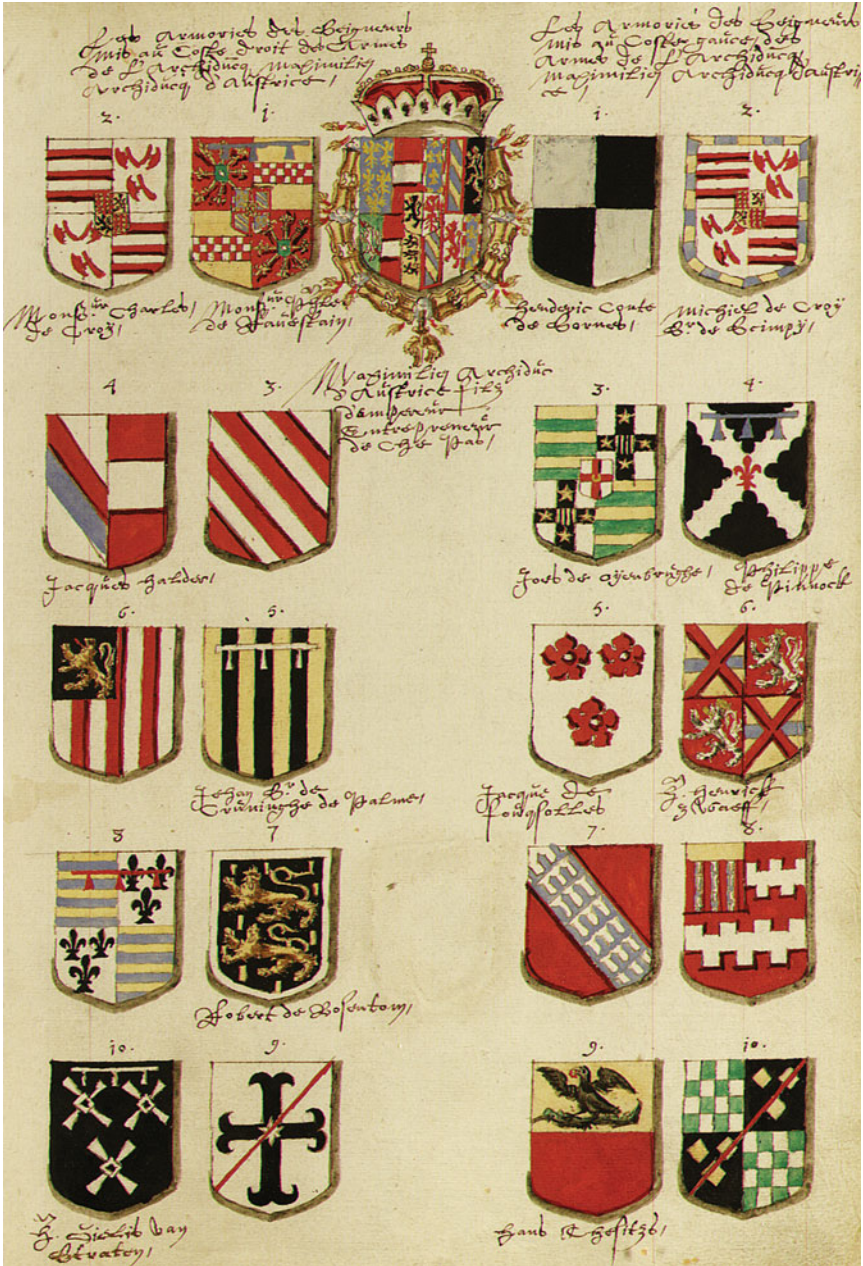 Les Armories des Seigneurs
mis au Coste droit des Armes
de L'Archiducq Maximiliei
Archiducq d'Austrice
Les Armories des Seigneurs
mis au Coste gauce des
Armes de L'Archiducq
Maximiliei Archiducq d'Austri
ce
2. 1. 1. 2.
Monsr. Charles
de Croy
Monsr.
de Ravestain
Henderic Conte
de Hornes
Michiel de Croy
Sr. de Scimpy
Maximiliei Archiduc
d'Austrice filz
d'empereur
Entrepreneur
de Che Pas
4 3. 3. 4.
Jacques Halder
Joes de Oyenbrughe
Philippe
de Pinnock
6. 5. 5. 6.
Jehan Sr. de
Cruninghe de Palme
Jacque de
Fouqsolles
H. Henrick
8 7 7. 8.
Robert de Rosentom
10. 9. 9. 10.
H. Gielis van
Straten
Hans